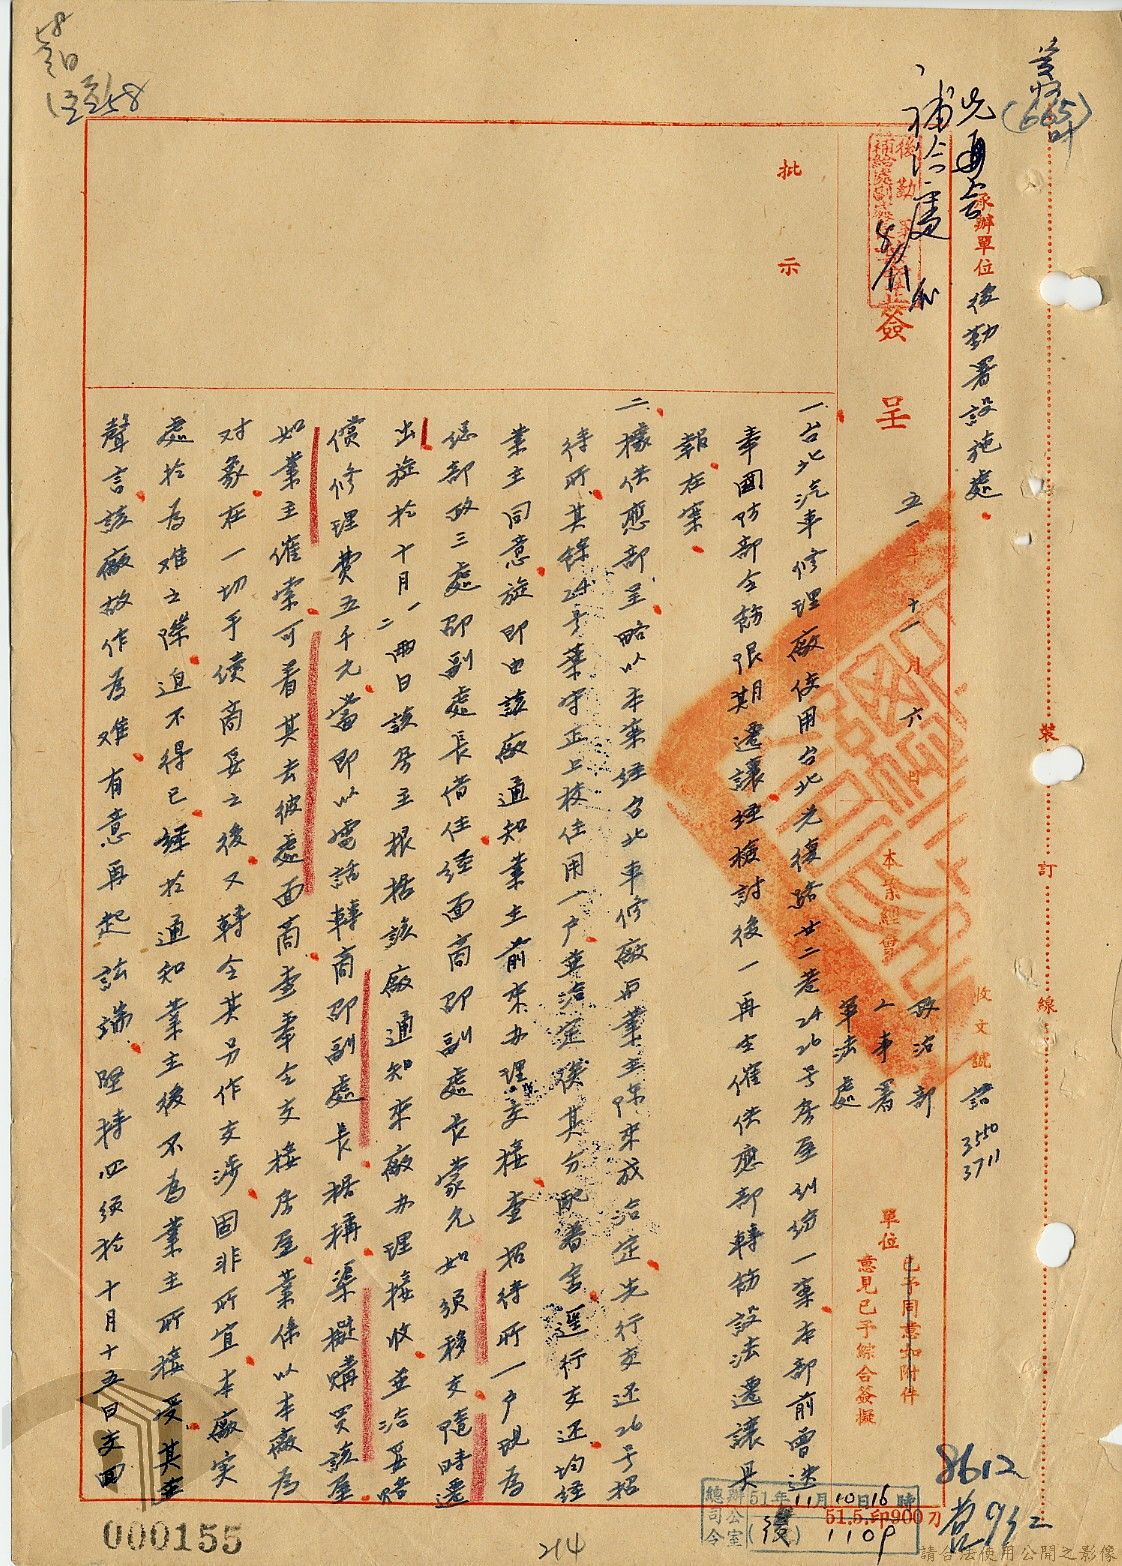 承辦單位 後勤署設施處
收文號
簽呈
五一年十一月六日
本案經會
政治部
人事署
軍法處
單位
已予同意如附件
意見已予綜合簽擬
批示
一、台北汽車修理廠使用台北光復路廿二巷24 26号房屋糾紛一案本部前曾迭
奉國防部令飭限期遷讓經檢討後一再令催供應部轉飭設法遷讓具
報在案
二、據供應部呈略以本案經台北車修廠與業主陳來成洽定先行交還26号招
待所其餘24号葉守正上校住用一户業洽定俟其分配眷舍逕行交还均經
業主同意旋即由該廠通知業主前來办理交接查招待所一户現為
總部政三處邵副處長借住經面商邵副處長蒙允如須移交隨時遷
出旋於十月一、二兩日該房主根据該廠通知來廠办理接收並洽妥賠
償修理費五千元當即以電話轉商邵副處長据稱渠擬購買該屋
如業主催索可着其去彼處面商查奉令交接房屋業係以本廠為
对象在一切手續商妥之後又轉令其另作交涉固非所宜本廠实
處於為难之際迫不得已經於通知業主後不為業主所接受其並
聲言該廠故作為难有意再起訟端堅持必須於十月十五日交回
裝訂線
8612
51年11月10日16時
總司令辦公室
51.5.印900刀
000155
214
請合法使用公開之影像